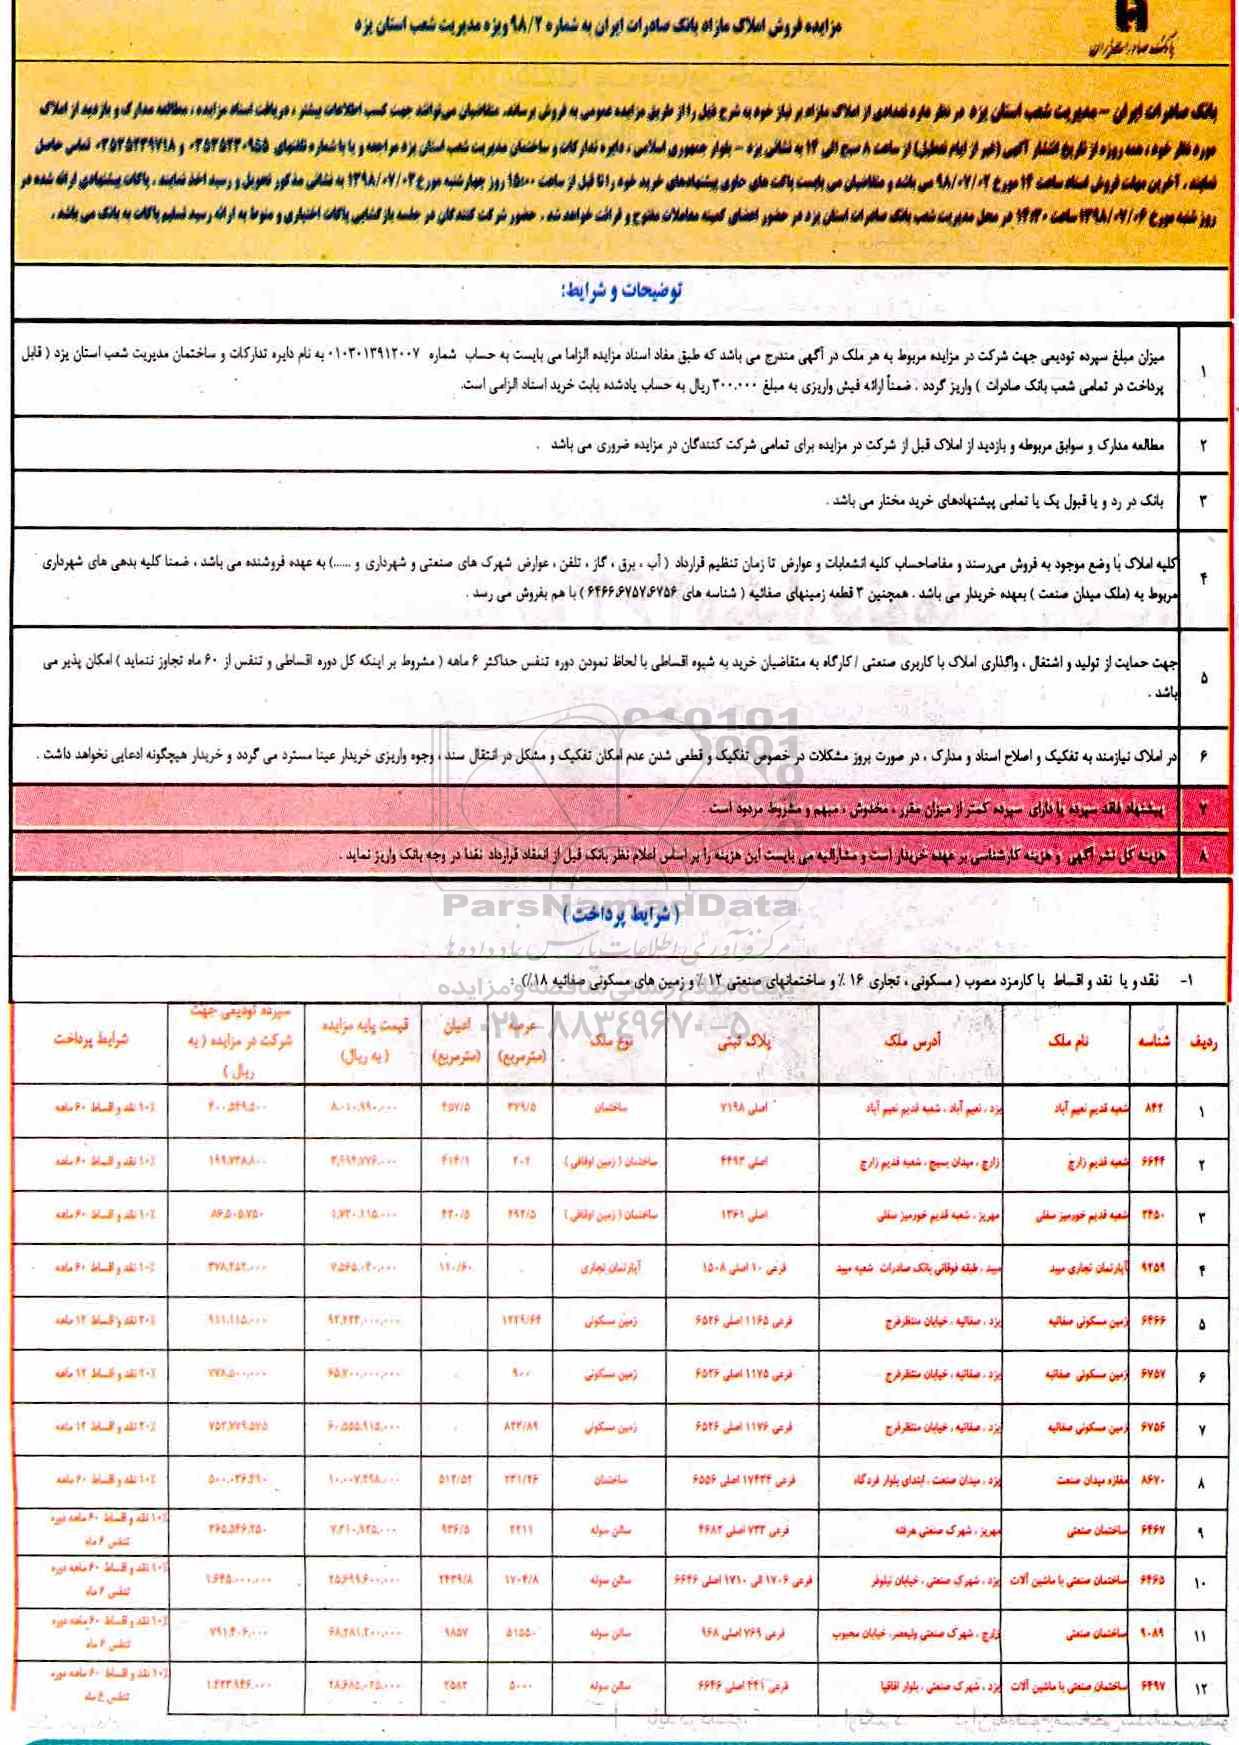 مزایده فروش املاک مازاد بانک صادرات ایران به شماره ۹۸/۲ ویژه مدیریت شعب استان یزد
بانک صادرات ایران
بانک صادرات ایران – مدیریت شعب استان یزد در نظر دارد تعدادی از املاک مازاد بر نیاز خود به شرح ذیل را از طریق مزایده عمومی به فروش برساند. متقاضیان می‌توانند جهت کسب اطلاعات بیشتر ، دریافت اسناد مزایده ، مطالعه مدارک و بازدید از املاک
مورد نظر خود ، همه روزه از تاریخ انتشار آگهی (غیر از ایام تعطیل) از ساعت ۸ صبح الی ۱۴ به نشانی یزد – بلوار جمهوری اسلامی ، دایره تدارکات و ساختمان مدیریت شعب استان یزد مراجعه و یا با شماره تلفنهای ۰۳۵۳۵۲۳۰۹۵۵ و ۰۳۵۳۵۲۳۹۷۱۸ تماس حاصل
نمایند . آخرین مهلت فروش اسناد ساعت ۱۴ مورخ ۹۸/۰۷/۰۲ می باشد و متقاضیان می بایست پاکت های حاوی پیشنهادهای خرید خود را تا قبل از ساعت ۱۵:۰۰ روز چهارشنبه مورخ ۱۳۹۸/۰۷/۰۳ به نشانی مذکور تحویل و رسید اخذ نمایند . پاکات پیشنهادی ارائه شده در
روز شنبه مورخ ۱۳۹۸/۰۷/۰۶ ساعت ۱۳:۳۰ در محل مدیریت شعب بانک صادرات استان یزد در حضور اعضای کمیته معاملات مفتوح و قرائت خواهد شد . حضور شرکت کنندگان در جلسه بازگشایی پاکات اختیاری و منوط به ارائه رسید تسلیم پاکات به بانک می باشد .
توضیحات و شرایط:
۱ میزان مبلغ سپرده تودیعی جهت شرکت در مزایده مربوط به هر ملک در آگهی مندرج می باشد که طبق مفاد اسناد مزایده الزاما می بایست به حساب شماره ۰۱۰۳۰۱۳۹۱۲۰۰۷ به نام دایره تدارکات و ساختمان مدیریت شعب استان یزد ( قابل
پرداخت در تمامی شعب بانک صادرات ) واریز گردد . ضمناً ارائه فیش واریزی به مبلغ ۳۰۰.۰۰۰ ریال به حساب یادشده بابت خرید اسناد الزامی است.
۲ مطالعه مدارک و سوابق مربوطه و بازدید از املاک قبل از شرکت در مزایده برای تمامی شرکت کنندگان در مزایده ضروری می باشد .
۳ بانک در رد و یا قبول یک یا تمامی پیشنهادهای خرید مختار می باشد .
۴ کلیه املاک با وضع موجود به فروش می‌رسند و مفاصاحساب کلیه انشعابات و عوارض تا زمان تنظیم قرارداد ( آب ، برق ، گاز ، تلفن ، عوارض شهرک های صنعتی و شهرداری و ......) به عهده فروشنده می باشد ، ضمنا کلیه بدهی های شهرداری
مربوط به (ملک میدان صنعت ) بعهده خریدار می باشد . همچنین ۳ قطعه زمینهای صفائیه ( شناسه های ۶۴۶۶،۶۷۵۷،۶۷۵۶ ) با هم بفروش می رسد .
۵ جهت حمایت از تولید و اشتغال ، واگذاری املاک با کاربری صنعتی / کارگاه به متقاضیان خرید به شیوه اقساطی با لحاظ نمودن دوره تنفس حداکثر ۶ ماهه ( مشروط بر اینکه کل دوره اقساطی و تنفس از ۶۰ ماه تجاوز ننماید ) امکان پذیر می
باشد .
۶ در املاک نیازمند به تفکیک و اصلاح اسناد و مدارک ، در صورت بروز مشکلات در خصوص تفکیک و قطعی شدن عدم امکان تفکیک و مشکل در انتقال سند ، وجوه واریزی خریدار عینا مسترد می گردد و خریدار هیچگونه ادعایی نخواهد داشت .
۷ پیشنهاد فاقد سپرده یا دارای سپرده کمتر از میزان مقرر ، مخدوش ، مبهم و مشروط مردود است .
۸ هزینه کل نشر آگهی و هزینه کارشناسی بر عهده خریدار است و مشارالیه می بایست این هزینه را بر اساس اعلام نظر بانک قبل از انعقاد قرارداد نقدا در وجه بانک واریز نماید .
ParsNamadData
( شرایط پرداخت )
۱- نقد و یا نقد و اقساط با کارمزد مصوب ( مسکونی ، تجاری ۱۶ ٪ و ساختمانهای صنعتی ۱۲ ٪ و زمین های مسکونی صفائیه ۱۸٪) :
۰۲۱-۸۸۳۴۹۶۷۰-۵
ردیف شناسه نام ملک آدرس ملک پلاک ثبتی نوع ملک عرصه (مترمربع) اعیان (مترمربع) قیمت پایه مزایده ( به ریال) سپرده تودیعی جهت شرکت در مزایده ( به ریال ) شرایط پرداخت
۱ ۸۴۲ شعبه قدیم نعیم آباد یزد ، نعیم آباد ، شعبه قدیم نعیم آباد ۷۱۹۸ اصلی ساختمان ۳۷۹/۵ ۴۵۷/۵ ۸،۰۱۰،۹۹۰،۰۰۰ ۴۰۰،۵۴۹،۵۰۰ ۱۰٪ نقد و اقساط ۶۰ ماهه
۲ ۶۶۴۴ شعبه قدیم زارچ زارچ ، میدان بسیج ، شعبه قدیم زارچ ۴۴۹۳ اصلی ساختمان ( زمین اوقافی ) ۲۰۲ ۴۱۴/۱ ۳،۹۹۴،۷۷۶،۰۰۰ ۱۹۹،۷۳۸،۸۰۰ ۱۰٪ نقد و اقساط ۶۰ ماهه
۳ ۲۴۵۰ شعبه قدیم خورمیز سفلی مهریز ، شعبه قدیم خورمیز سفلی ۱۳۶۱ اصلی ساختمان ( زمین اوقافی ) ۴۹۲/۵ ۲۲۰/۵ ۱،۷۳۰،۱۱۵،۰۰۰ ۸۶،۵۰۵،۷۵۰ ۱۰٪ نقد و اقساط ۶۰ ماهه
۴ ۹۲۵۹ آپارتمان تجاری میبد میبد ، طبقه فوقانی بانک صادرات شعبه میبد ۱۰ فرعی ۱۵۰۸ اصلی آپارتمان تجاری ۰ ۱۱۰/۶۰ ۷،۵۶۵،۰۴۰،۰۰۰ ۳۷۸،۲۵۲،۰۰۰ ۱۰٪ نقد و اقساط ۶۰ ماهه
۵ ۶۴۶۶ زمین مسکونی صفائیه یزد ، صفائیه ، خیابان منتظرفرج ۱۱۶۵ فرعی ۶۵۲۶ اصلی زمین مسکونی ۱۲۲۹/۶۴ ۹۱۱،۱۱۵،۰۰۰ ۲۰٪ نقد و اقساط ۱۲ ماهه
۶ ۶۷۵۷ زمین مسکونی صفائیه یزد ، صفائیه ، خیابان منتظرفرج ۱۱۷۵ فرعی ۶۵۲۶ اصلی زمین مسکونی ۹۰۰ ۶۵،۷۰۰،۰۰۰،۰۰۰ ۷۷۸،۵۰۰،۰۰۰ ۲۰٪ نقد و اقساط ۱۲ ماهه
۷ ۶۷۵۶ زمین مسکونی صفائیه یزد ، صفائیه ، خیابان منتظرفرج ۱۱۷۶ فرعی ۶۵۲۶ اصلی زمین مسکونی ۸۴۳/۸۹ ۰ ۶۰،۵۵۵،۹۱۵،۰۰۰ ۷۵۲،۷۷۹،۵۷۵ ۲۰٪ نقد و اقساط ۱۲ ماهه
۸ ۸۶۷۰ مغازه میدان صنعت یزد ، میدان صنعت ، ابتدای بلوار فرودگاه ۱۷۴۳۴ فرعی ۶۵۵۶ اصلی ساختمان ۲۳۱/۲۶ ۵۱۲/۵۲ ۱۰،۰۰۷،۲۹۸،۰۰۰ ۱۰٪ نقد و اقساط ۶۰ ماهه
۹ ۶۴۶۷ ساختمان صنعتی مهریز ، شهرک صنعتی هرفته ۷۳۳ فرعی ۴۶۸۲ اصلی سالن سوله ۲۲۱۱ ۹۳۶/۵ ۷،۳۱۰،۹۲۵،۰۰۰ ۳۶۵،۵۴۶،۲۵۰ ۱۰٪ نقد و اقساط ۶۰ ماهه دوره تنفس ۶ ماه
۱۰ ۶۴۶۵ ساختمان صنعتی با ماشین آلات یزد ، شهرک صنعتی ، خیابان نیلوفر ۱۷۰۶ فرعی الی ۱۷۱۰ اصلی ۶۶۴۶ سالن سوله ۱۷۰۴/۸ ۲۴۳۹/۸ ۲۵،۶۹۹،۶۰۰،۰۰۰ ۱،۶۴۵،۰۰۰،۰۰۰ ۱۰٪ نقد و اقساط ۶۰ ماهه دوره تنفس ۶ ماه
۱۱ ۹۰۸۹ ساختمان صنعتی زارچ ، شهرک صنعتی ولیعصر، خیابان محبوب ۷۶۹ فرعی ۹۶۸ اصلی سالن سوله ۵۱۵۵۰ ۹۸۵۷ ۶۸،۲۸۱،۲۰۰،۰۰۰ ۷۹۱،۴۰۶،۰۰۰ ۱۰٪ نقد و اقساط ۶۰ ماهه دوره تنفس ۶ ماه
۱۲ ۶۴۹۷ ساختمان صنعتی با ماشین آلات یزد ، شهرک صنعتی ، بلوار اقاقیا ۴۴۱ فرعی ۶۶۴۶ اصلی سالن سوله ۵۰۰۰ ۲۵۸۲ ۲۸،۶۸۵،۰۲۵،۰۰۰ ۱،۴۲۳،۹۴۶،۰۰۰ ۱۰٪ نقد و اقساط ۶۰ ماهه دوره تنفس ۶ ماه